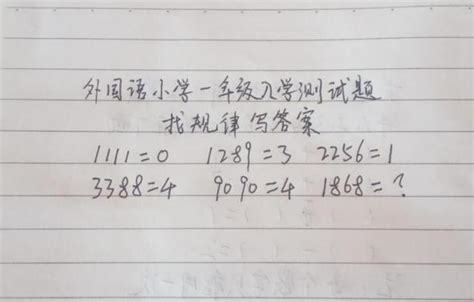 外国语小学一年级入学测试题
找规律写答案
1111=0 1289=3 2256=1
3388=4 9090=4 1868=?